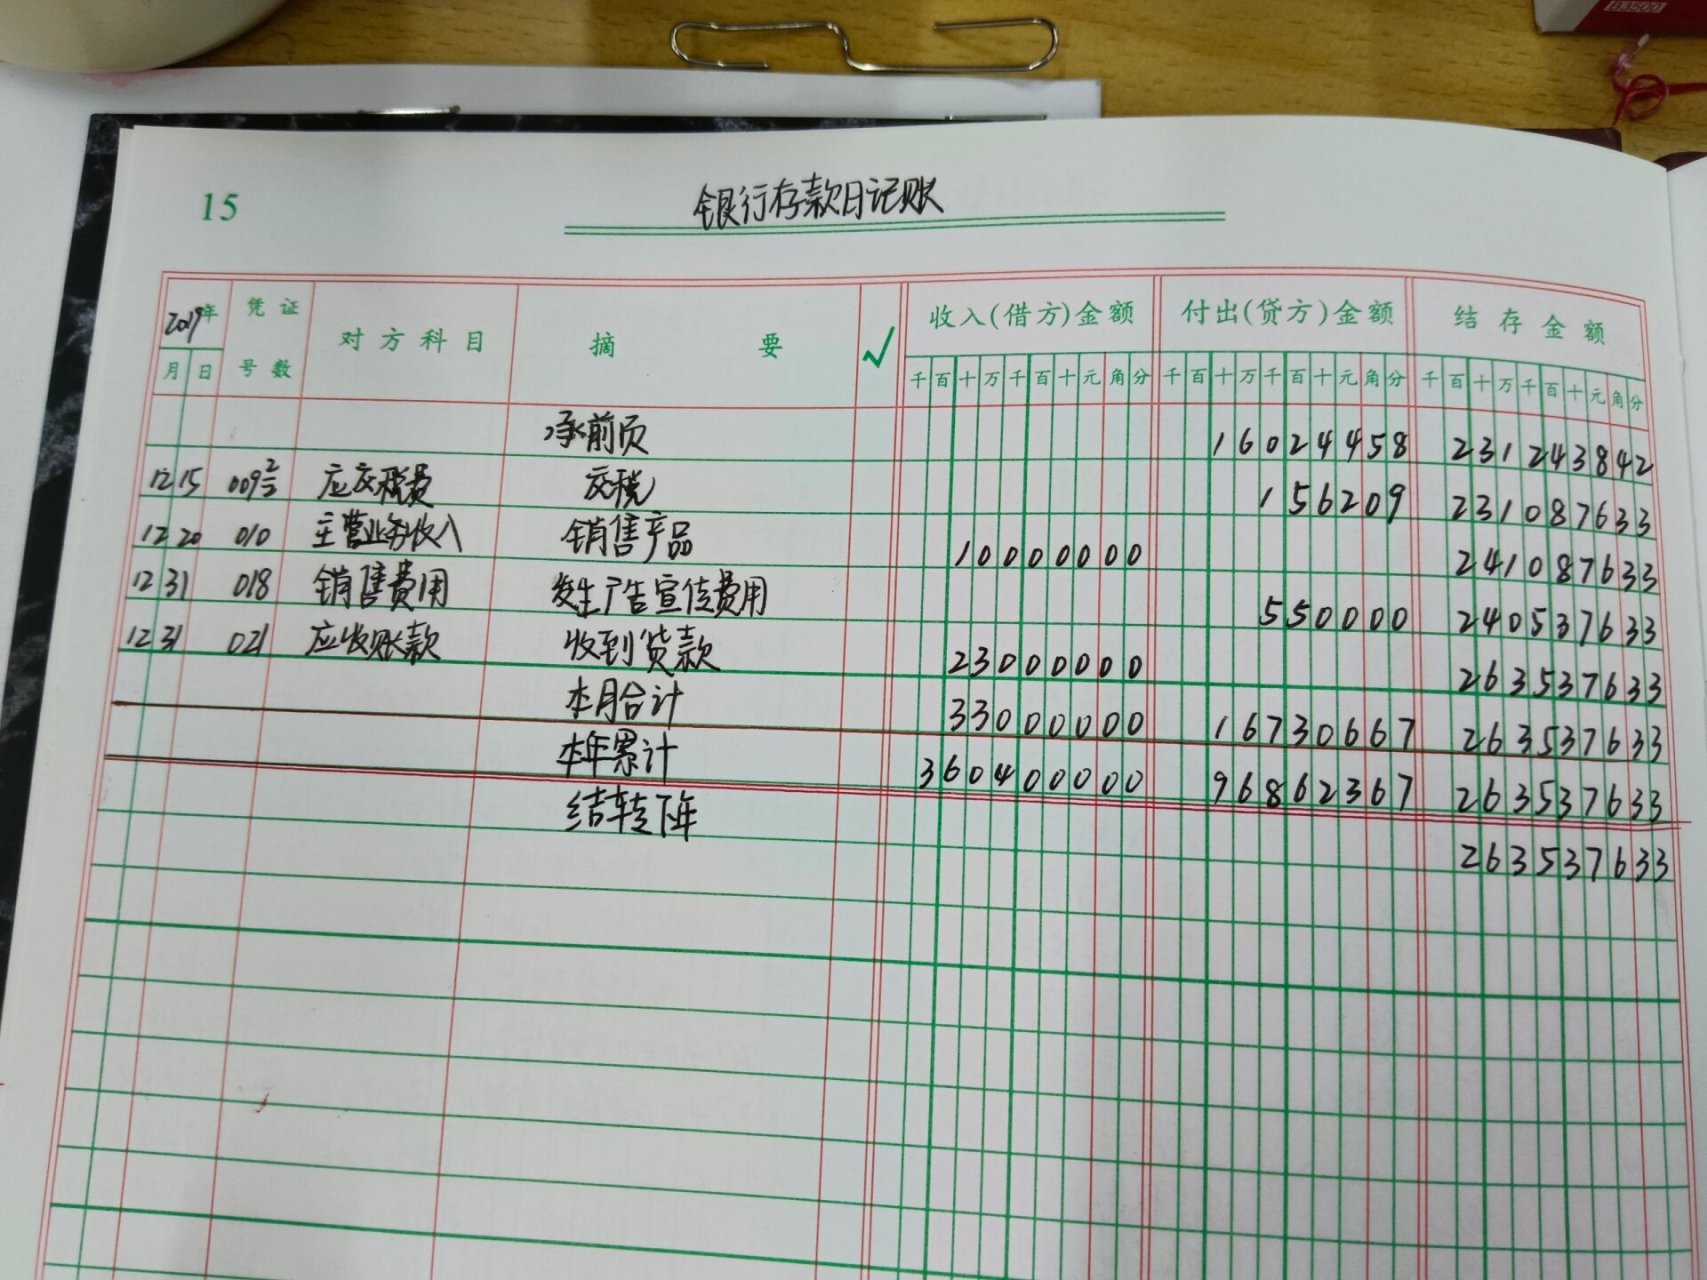 B3500
15
银行存款日记账
2019年 凭证 对方科目 摘要 ✓ 收入(借方)金额 付出(贷方)金额 结存金额
月 日 号数 千百十万千百十元角分 千百十万千百十元角分 千百十万千百十元角分
承前页 16024458 231243842
12 15 009 2/2 应交税费 交税 156209 231087633
12 20 010 主营业务收入 销售产品 10000000 241087633
12 31 018 销售费用 发生广告宣传费用 550000 240537633
12 31 021 应收账款 收到货款 23000000 263537633
本月合计 33000000 16730667 263537633
本年累计 360400000 96862367 263537633
结转下年 263537633